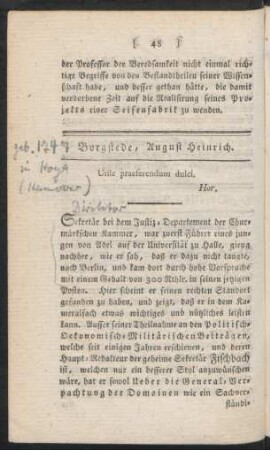 [ 48 ]
der Professor der Beredsamkeit nicht einmal rich-
tige Begriffe von den Bestandtheilen seiner Wissen-
schaft habe, und besser gethan hätte, die damit
verdorbene Zeit auf die Realisirung seines Pro-
jekts einer Seifenfabrik zu wenden.
geb. 1747
Borgstede, August Heinrich.
in Hoya
Utile praeferendum dulci.
(Hannover)
Hor.
Direktor
Sekretär bei dem Justiz-Departement der Chur-
märkischen Kammer, war zuerst Führer eines jun-
gen von Adel auf der Universität zu Halle, gieng
nachher, wie er sah, daß er dazu nicht taugte,
nach Berlin, und kam dort durch hohe Vorsprache
mit einem Gehalt von 300 Rthlr. in seinen jetzigen
Posten. Hier scheint er seinen rechten Standort
gefunden zu haben, und zeigt, daß er in dem Ka-
meralfach etwas wichtiges und nützliches leisten
kann. Ausser seiner Theilnahme an den Politisch-
Oeconomisch-Militärischen Beiträgen,
welche seit einigen Jahren erschienen, und deren
Haupt-Redakteur der geheime Sekretär Fischbach
ist, welchem nur ein besserer Styl anzuwünschen
wäre, hat er sowol Ueber die General-Ver-
pachtung der Domainen wie ein Sachver-
ständi-